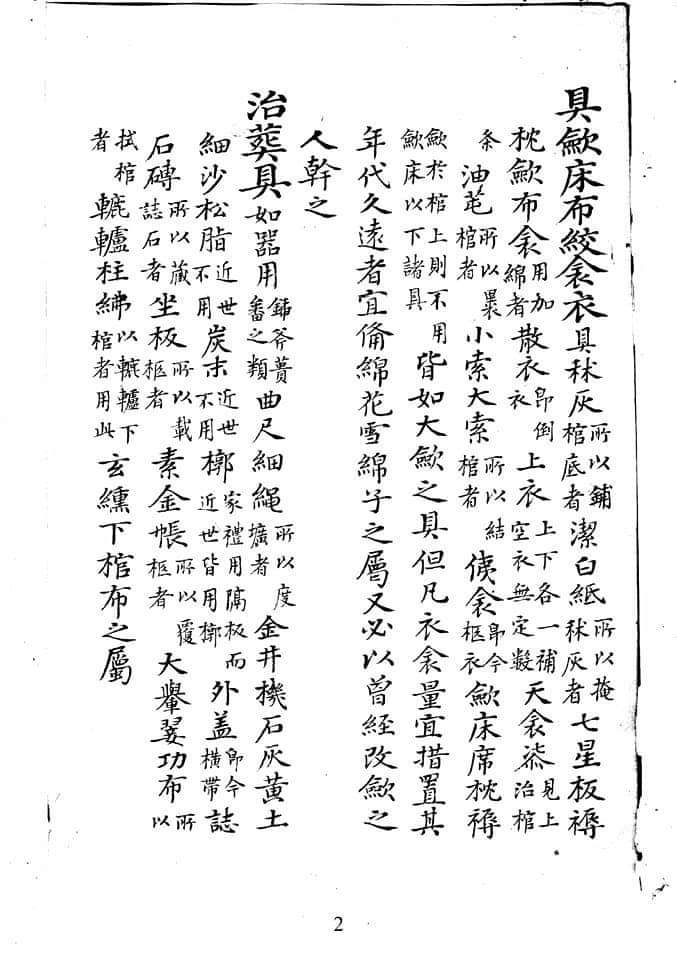 具歛床布絞衾衣具秫灰所以鋪棺底者潔白紙所以掩秫灰者七星板褥
枕歛布衾用加綿者散衣卽倒衣上衣上下各一補空衣無定數天衾見上治棺
条油芚所以裹棺者小索大索所以結棺者侇衾卽今柩衣歛床席枕褥
歛於棺上則不用歛床以下諸具皆如大歛之具但凡衣衾量宜措置其
年代久遠者宜俻綿花雪綿子之屬又必以曾經改歛之
人幹之
治葬具如器用鍤斧蕢畚之類曲尺細繩所以度壙者金井機石灰黄土
細沙松脂近世不用炭末近世不用槨家禮用隔板而近世皆用槨外盖卽今橫帶誌
石磚所以藏誌石者坐板所以載柩者素金帳所以覆柩者大轝翣功布所以
拭棺者轆轤柱紼以轆轤下棺者用此玄纁下棺布之屬
2